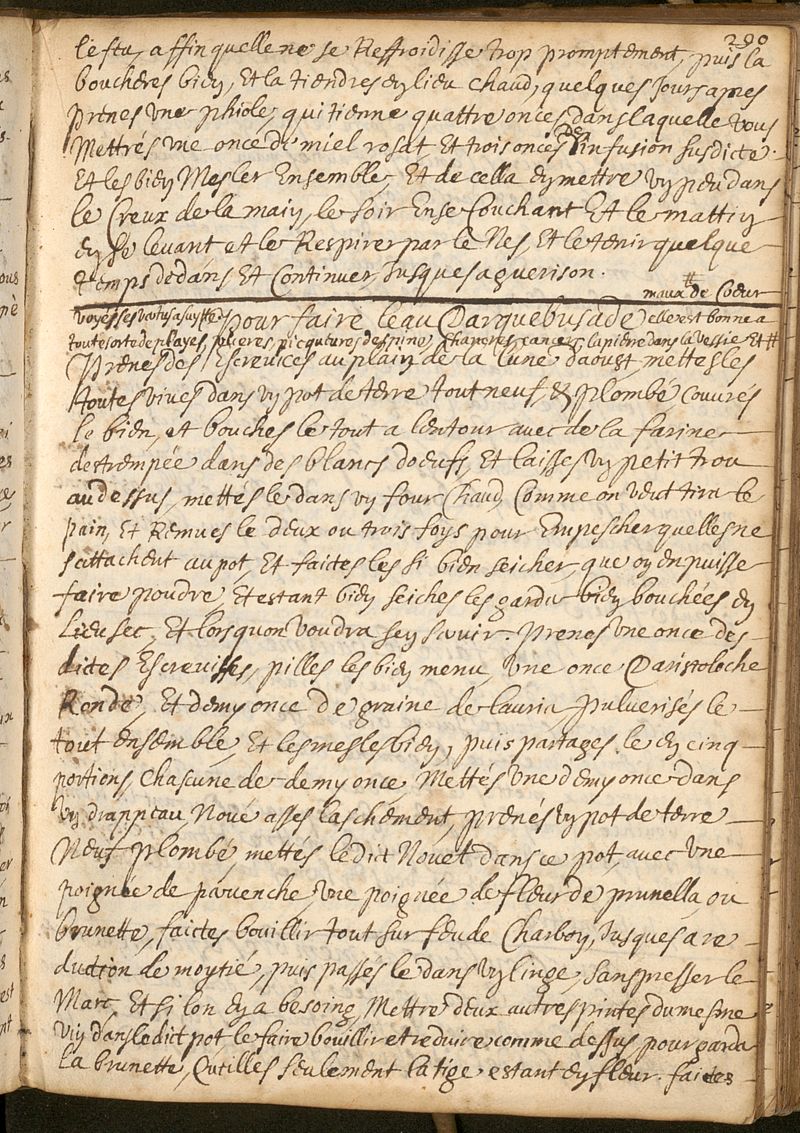 290
lestu, affin quelle ne se Reffroidisse trop promptement, puis la
boucheres bien, Et la tiendres en lieu chaud, quelques Jours apres
prenes vne phiole, qui tienne quattre onces, dans laquelle vous
Mettrés vne once de miel rosat, Et trois onces De infusion susdicte.
Et les bien Mesler Ensemble, Et de cella en mettre vn peu dans
le Creux de la main, le soir En se Couchant Et le mattin
En se levant et le Respirer par le Nes, Et le tenir quelque
temps dedans Et Continuer, Jusques a guerison.
maux de Coeur
voyes ses vertus a suytte pour faire leau Darquebusade elle est bonne a
toute sorte de playes, ulceres picqueures despine, Chancres cancer, la pierre dans la vessie Et #
Prenes des Escrevices au plain de la lune daoust, mettes les
toutes vives dans vn pot de terre tout neuf, Et plombé couvrés
le bien, et bouches le tout a lentour avec de la farine
destrempée dans des blancs doeufs, Et laisses vn petit trou
au dessus, mettés le dans vn four Chaud Comme on veut tirer le
pain, Et Remues le deux ou trois foys pour Empescher quelles ne
sattachent au pot, Et faites les si bien seicher, que on en puisse
faire poudre, Et estant bien seiches les garder bien bouchées en
Lieu sec, Et lors quon voudra sen servir. Prenes vne once des
dictes Escrevisses, pilles les bien menu, vne once Daristoloche
Ronde, Et demy once de graine de laurier, Pulverisés le
tout ensemble, Et les mesles bien, puis partages le en cinq
portions, Chascune de demy once Mettés vne demy once dans
vn drappeau, Noué asses laschement, prenés vn pot de terre
Neuf plombé, mettés le dict Nouet dans ce pot, avec vne
poignée de pervenche, vne poignée de fleur de prunella, ou
brunette, faictes bouillir tout sur feu de Charbon, Jusques a re
duction de moytié, puis passés le dans vn linge, sans presser le
Marc, Et si lon en a besoing, Mettre deux autres pintes du mesme
vin dans le dict pot, le faire bouillir et reduire comme dessus, pour garder
La brunette, Cueilles seulement la tige estant en fleur. faictes